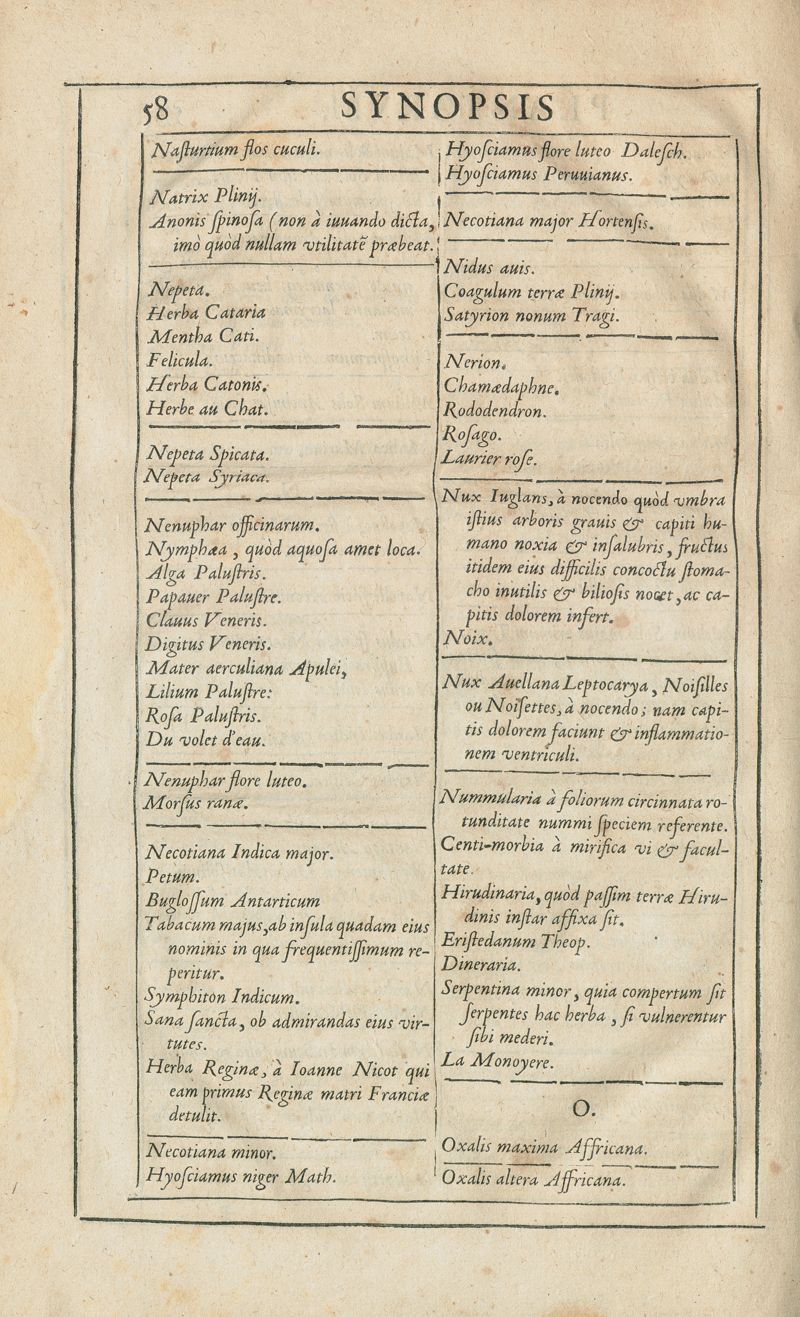 58 SYNOPSIS
Naſturtium flos cuculi.
Natrix Plinij.
Anonis ſpinoſa (non à iuuando dicta,
imò quòd nullam vtilitatẽ præbeat.
Nepeta.
Herba Cataria
Mentha Cati.
Felicula.
Herba Catonis.
Herbe au Chat.
Nepeta Spicata.
Nepeta Syriaca.
Nenuphar officinarum.
Nymphæa, quòd aquoſa amet loca.
Alga Paluſtris.
Papauer Paluſtre.
Clauus Veneris.
Digitus Veneris.
Mater aerculiana Apulei,
Lilium Paluſtre:
Roſa Paluſtris.
Du volet d'eau.
Nenuphar flore luteo.
Morſus ranæ.
Necotiana Indica major.
Petum.
Bugloſſum Antarticum
Tabacum majus, ab inſula quadam eius
nominis in qua frequentiſſimum re-
peritur.
Symphiton Indicum.
Sana ſancta, ob admirandas eius vir-
tutes.
Herba Reginæ, à Ioanne Nicot qui
eam primus Reginæ matri Franciæ
detulit.
Necotiana minor.
Hyoſciamus niger Math.
Hyoſciamus flore luteo Daleſch.
Hyoſciamus Peruuianus.
Necotiana major Hortenſis.
Nidus auis.
Coagulum terræ Plinij.
Satyrion nonum Tragi.
Nerion.
Chamædaphne.
Rododendron.
Roſago.
Laurier roſe.
Nux Iuglans, à nocendo quòd vmbra
iſtius arboris grauis & capiti hu-
mano noxia & inſalubris, fructus
itidem eius difficilis concoctu ſtoma-
cho inutilis & bilioſis nocet, ac ca-
pitis dolorem infert.
Noix.
Nux Auellana Leptocarya, Noiſilles
ou Noiſettes, à nocendo; nam capi-
tis dolorem faciunt & inflammatio-
nem ventriculi.
Nummularia à foliorum circinnata ro-
tunditate nummi ſpeciem referente.
Centi-morbia à mirifica vi & facul-
tate.
Hirudinaria, quòd paſſim terræ Hiru-
dinis inſtar affixa ſit.
Eriſtedanum Theop.
Dineraria.
Serpentina minor, quia compertum ſit
ſerpentes hac herba, ſi vulnerentur
ſibi mederi.
La Monoyere.
O.
Oxalis maxima Affricana.
Oxalis altera Affricana.